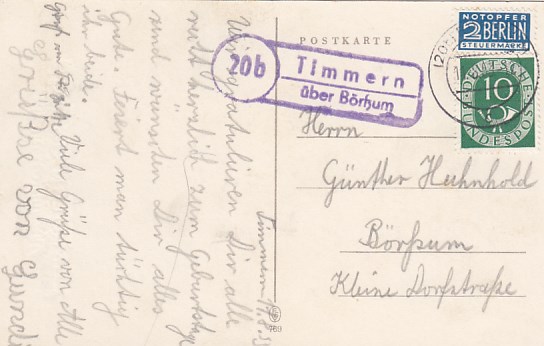 POSTKARTE
20b
Timmern
über Börßum
NOTOPFER
2 BERLIN
STEUERMARKE
DEUTSCHE
10
BUNDESPOST
Herrn
Günther Huhnhold
Börßum
Kleine Dorfstraße
Timmern
Wir gratulieren Dir alle
recht herzlich zum Geburtstage
und wünschen Dir alles
Gute. Feiert man tüchtig
ihr beide.
Viele Grüße von Alle
Grüße von
789